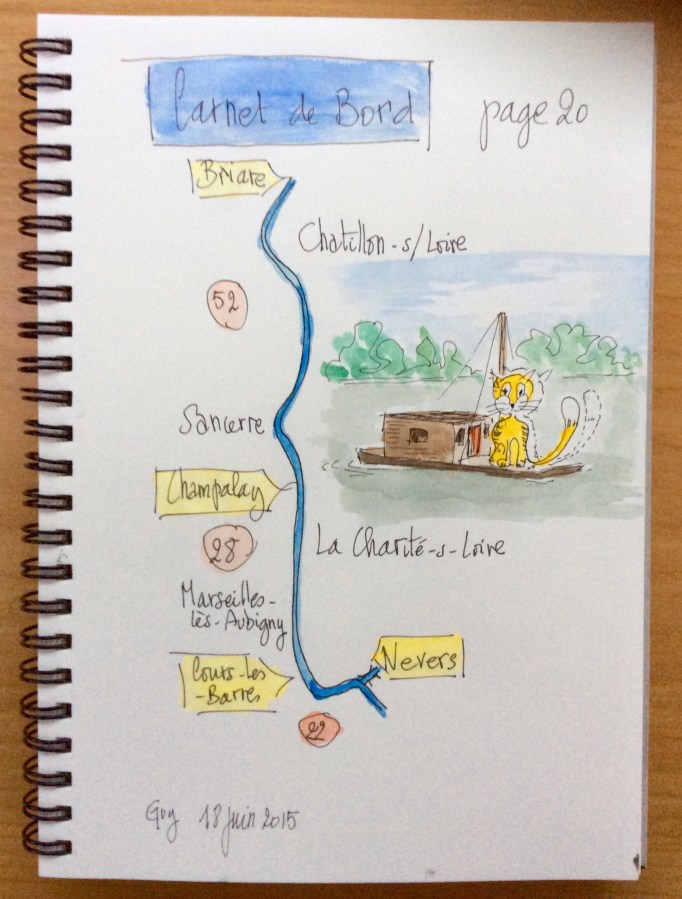 Carnet de Bord
page 20
Briare
Chatillon-s/Loire
52
Sancerre
Champalay
28
La Charité-s-Loire
Marseilles-
lès-Aubigny
Nevers
Cours-les
-Barres
22
Guy 18 juin 2015